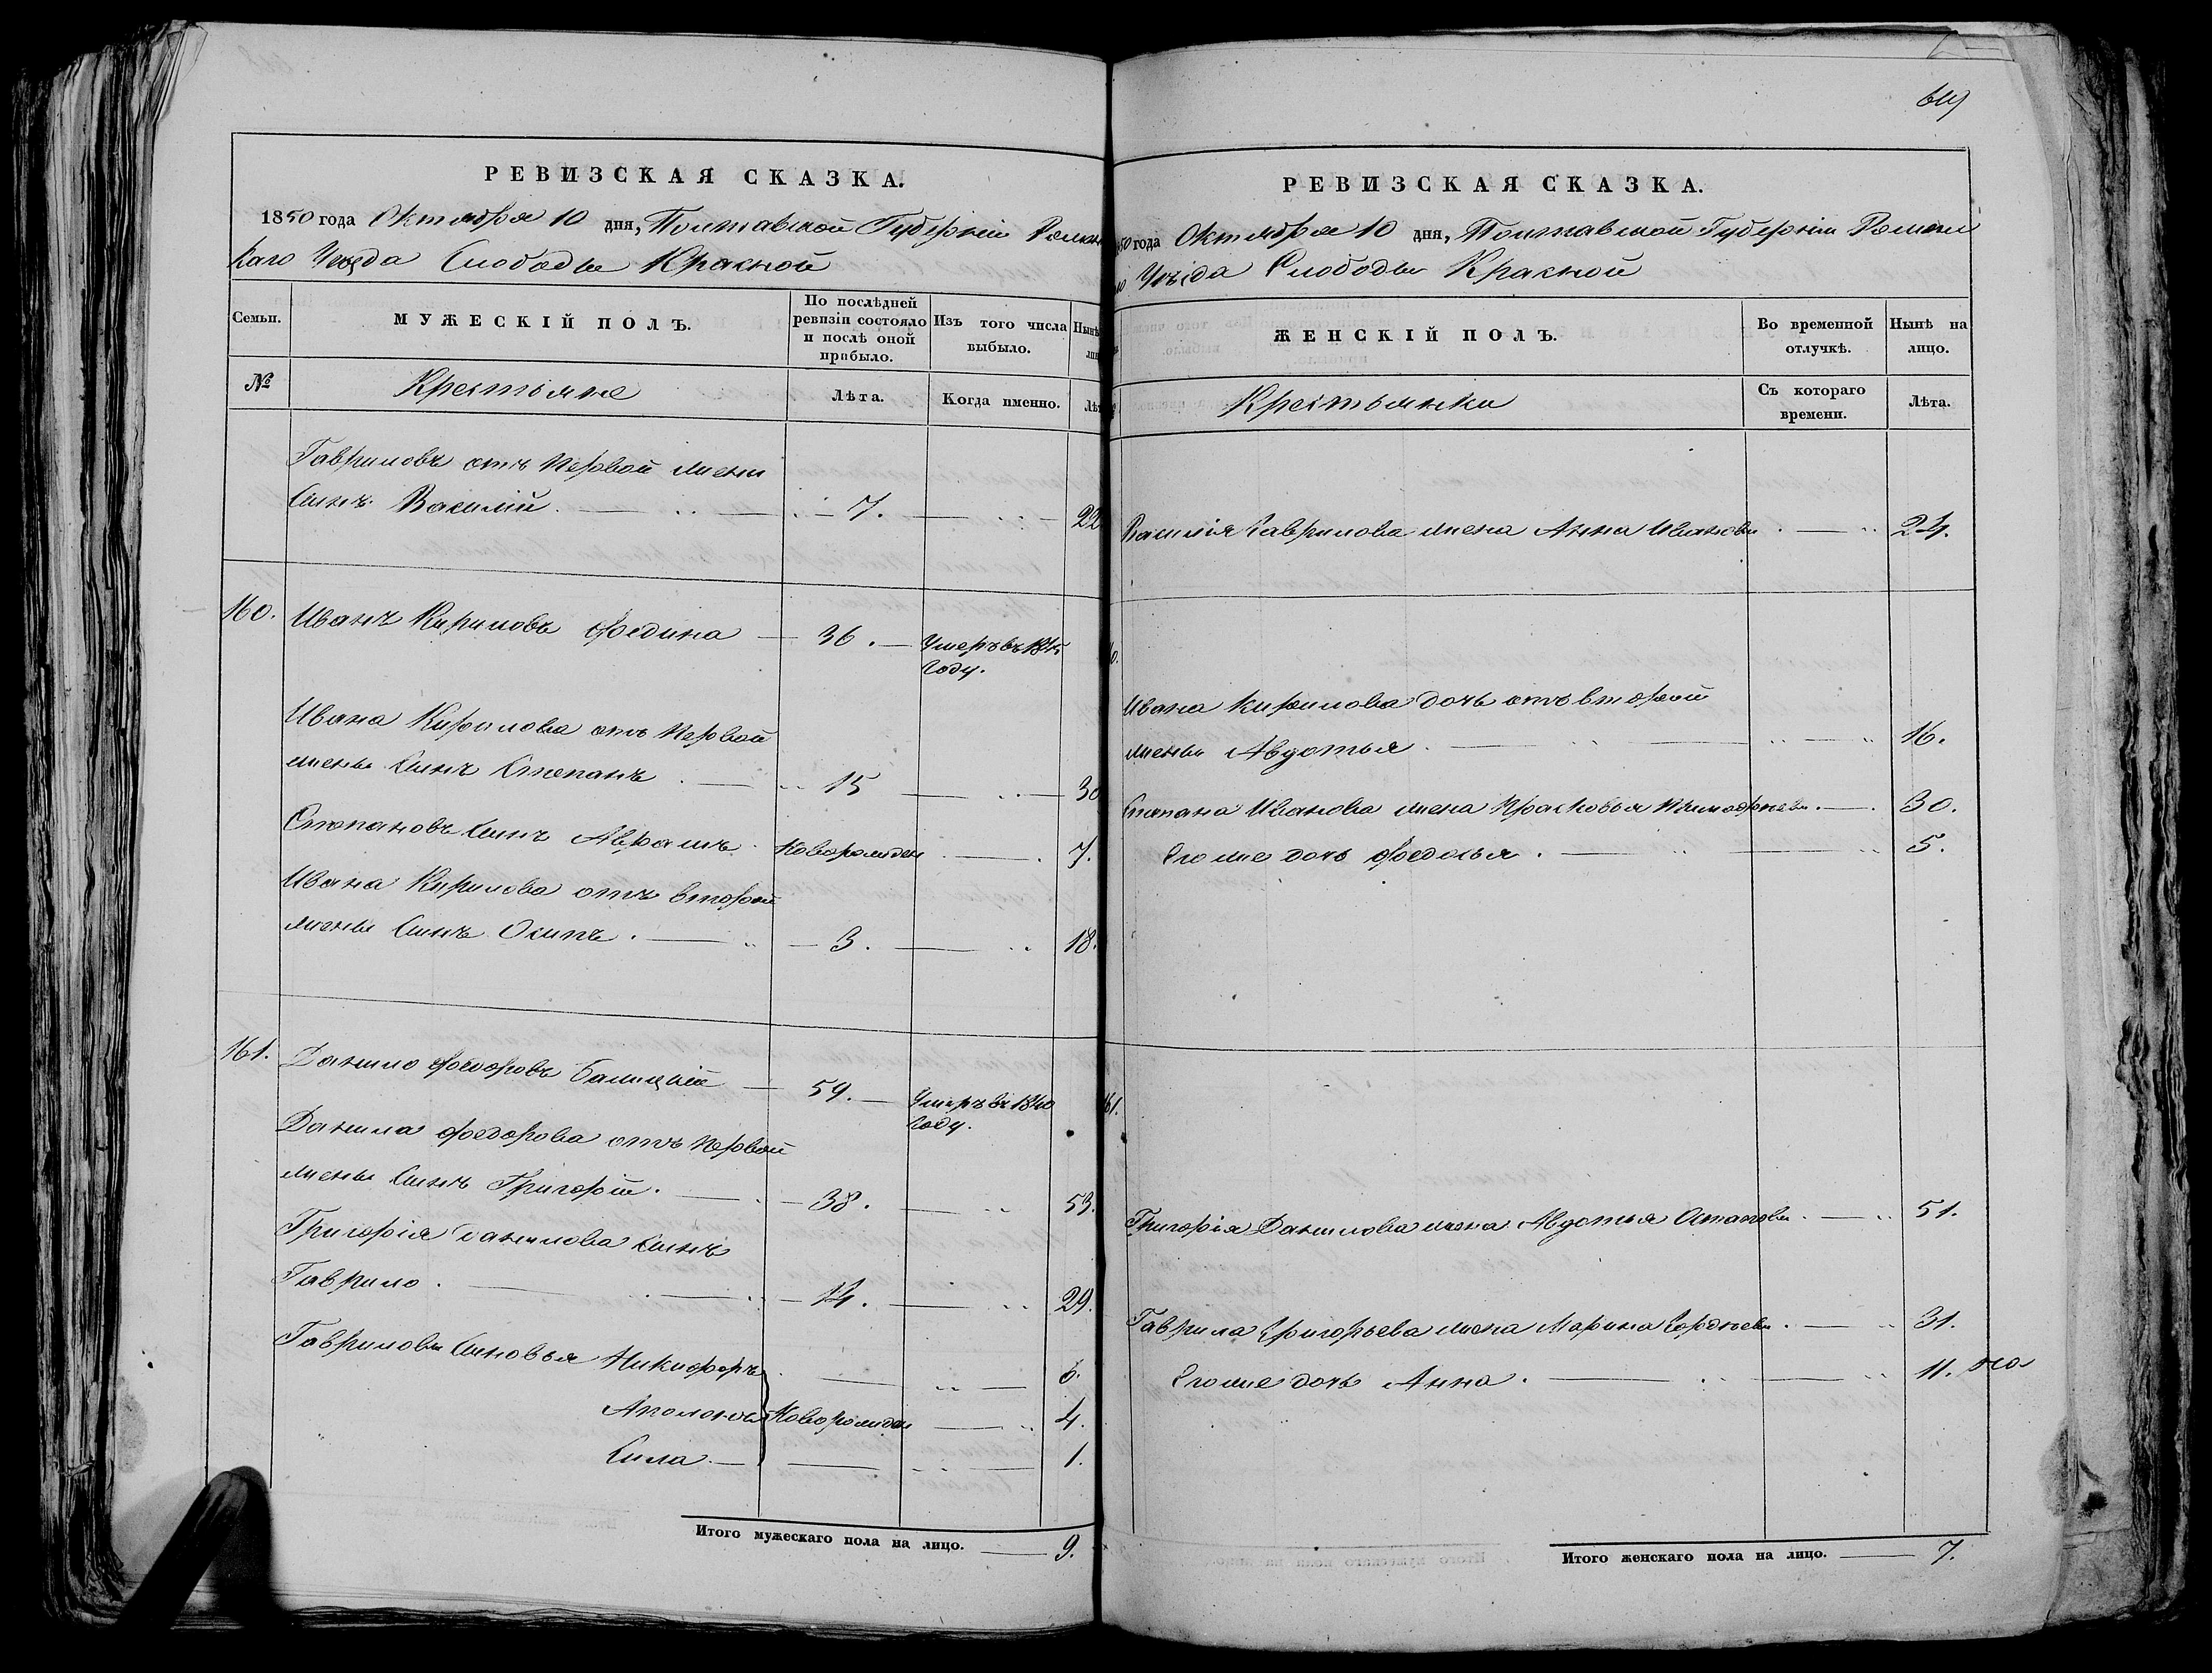 РЕВИЗСКАЯ СКАЗКА.
1850 года Октября 10 дня, Полтавской Губерніи Ромен
каго Уезда Слободы Красной
Семьи.
МУЖЕСКІЙ ПОЛЪ.
По послѣдней
ревизіи состояло
и послѣ оной
прибыло.
Изъ того числа
выбыло.
Нынѣ
№
Крестьяне
Лѣта.
Когда именно.
Лѣт
Гавриловъ отъ первой жены
сынъ Василій 7. 22
160. Иванъ Кириловъ Федина 36. Умеръ въ 1845
году.
Ивана Кирилова отъ первой
жены сынъ Степанъ 15 30
Степановъ сынъ Аврамъ Новорожден 7.
Ивана Кирилова отъ второй
жены сынъ Осипъ. 3. 18.
161. Данило Федоровъ Балицкій 59. Умеръ въ 1840
году.
Данила Федорова отъ первой
жены сынъ Григорій. 38. 53.
Григорія Данилова сынъ
Гаврило. 14. 29.
Гавриловы сыновья Никифоръ 6.
Аполонъ Новорожден 4.
Сила 1.
Итого мужескаго пола на лицо. 9.
619
РЕВИЗСКАЯ СКАЗКА.
50 года Октября 10 дня, Полтавской Губерніи Роменс
го Уѣзда Слободы Красной
ЖЕНСКІЙ ПОЛЪ.
Во временной
отлучкѣ.
Нынѣ на
лицо.
Крестьянки
Съ котораго
времени.
Лѣта.
Василія Гаврилова жена Анна Иванова 24.
0.
Ивана Кирилова дочь отъ второй
жены Авдотья 16.
Степана Иванова жена Прасковья Тимофеева 30.
Его же дочь Федосья 5.
61.
Григорія Данилова жена Авдотья Остапова 51.
Гаврила Григорьева жена Марина Гордѣева 31.
Его же дочь Анна 11.
Итого женскаго пола на лицо. 7.